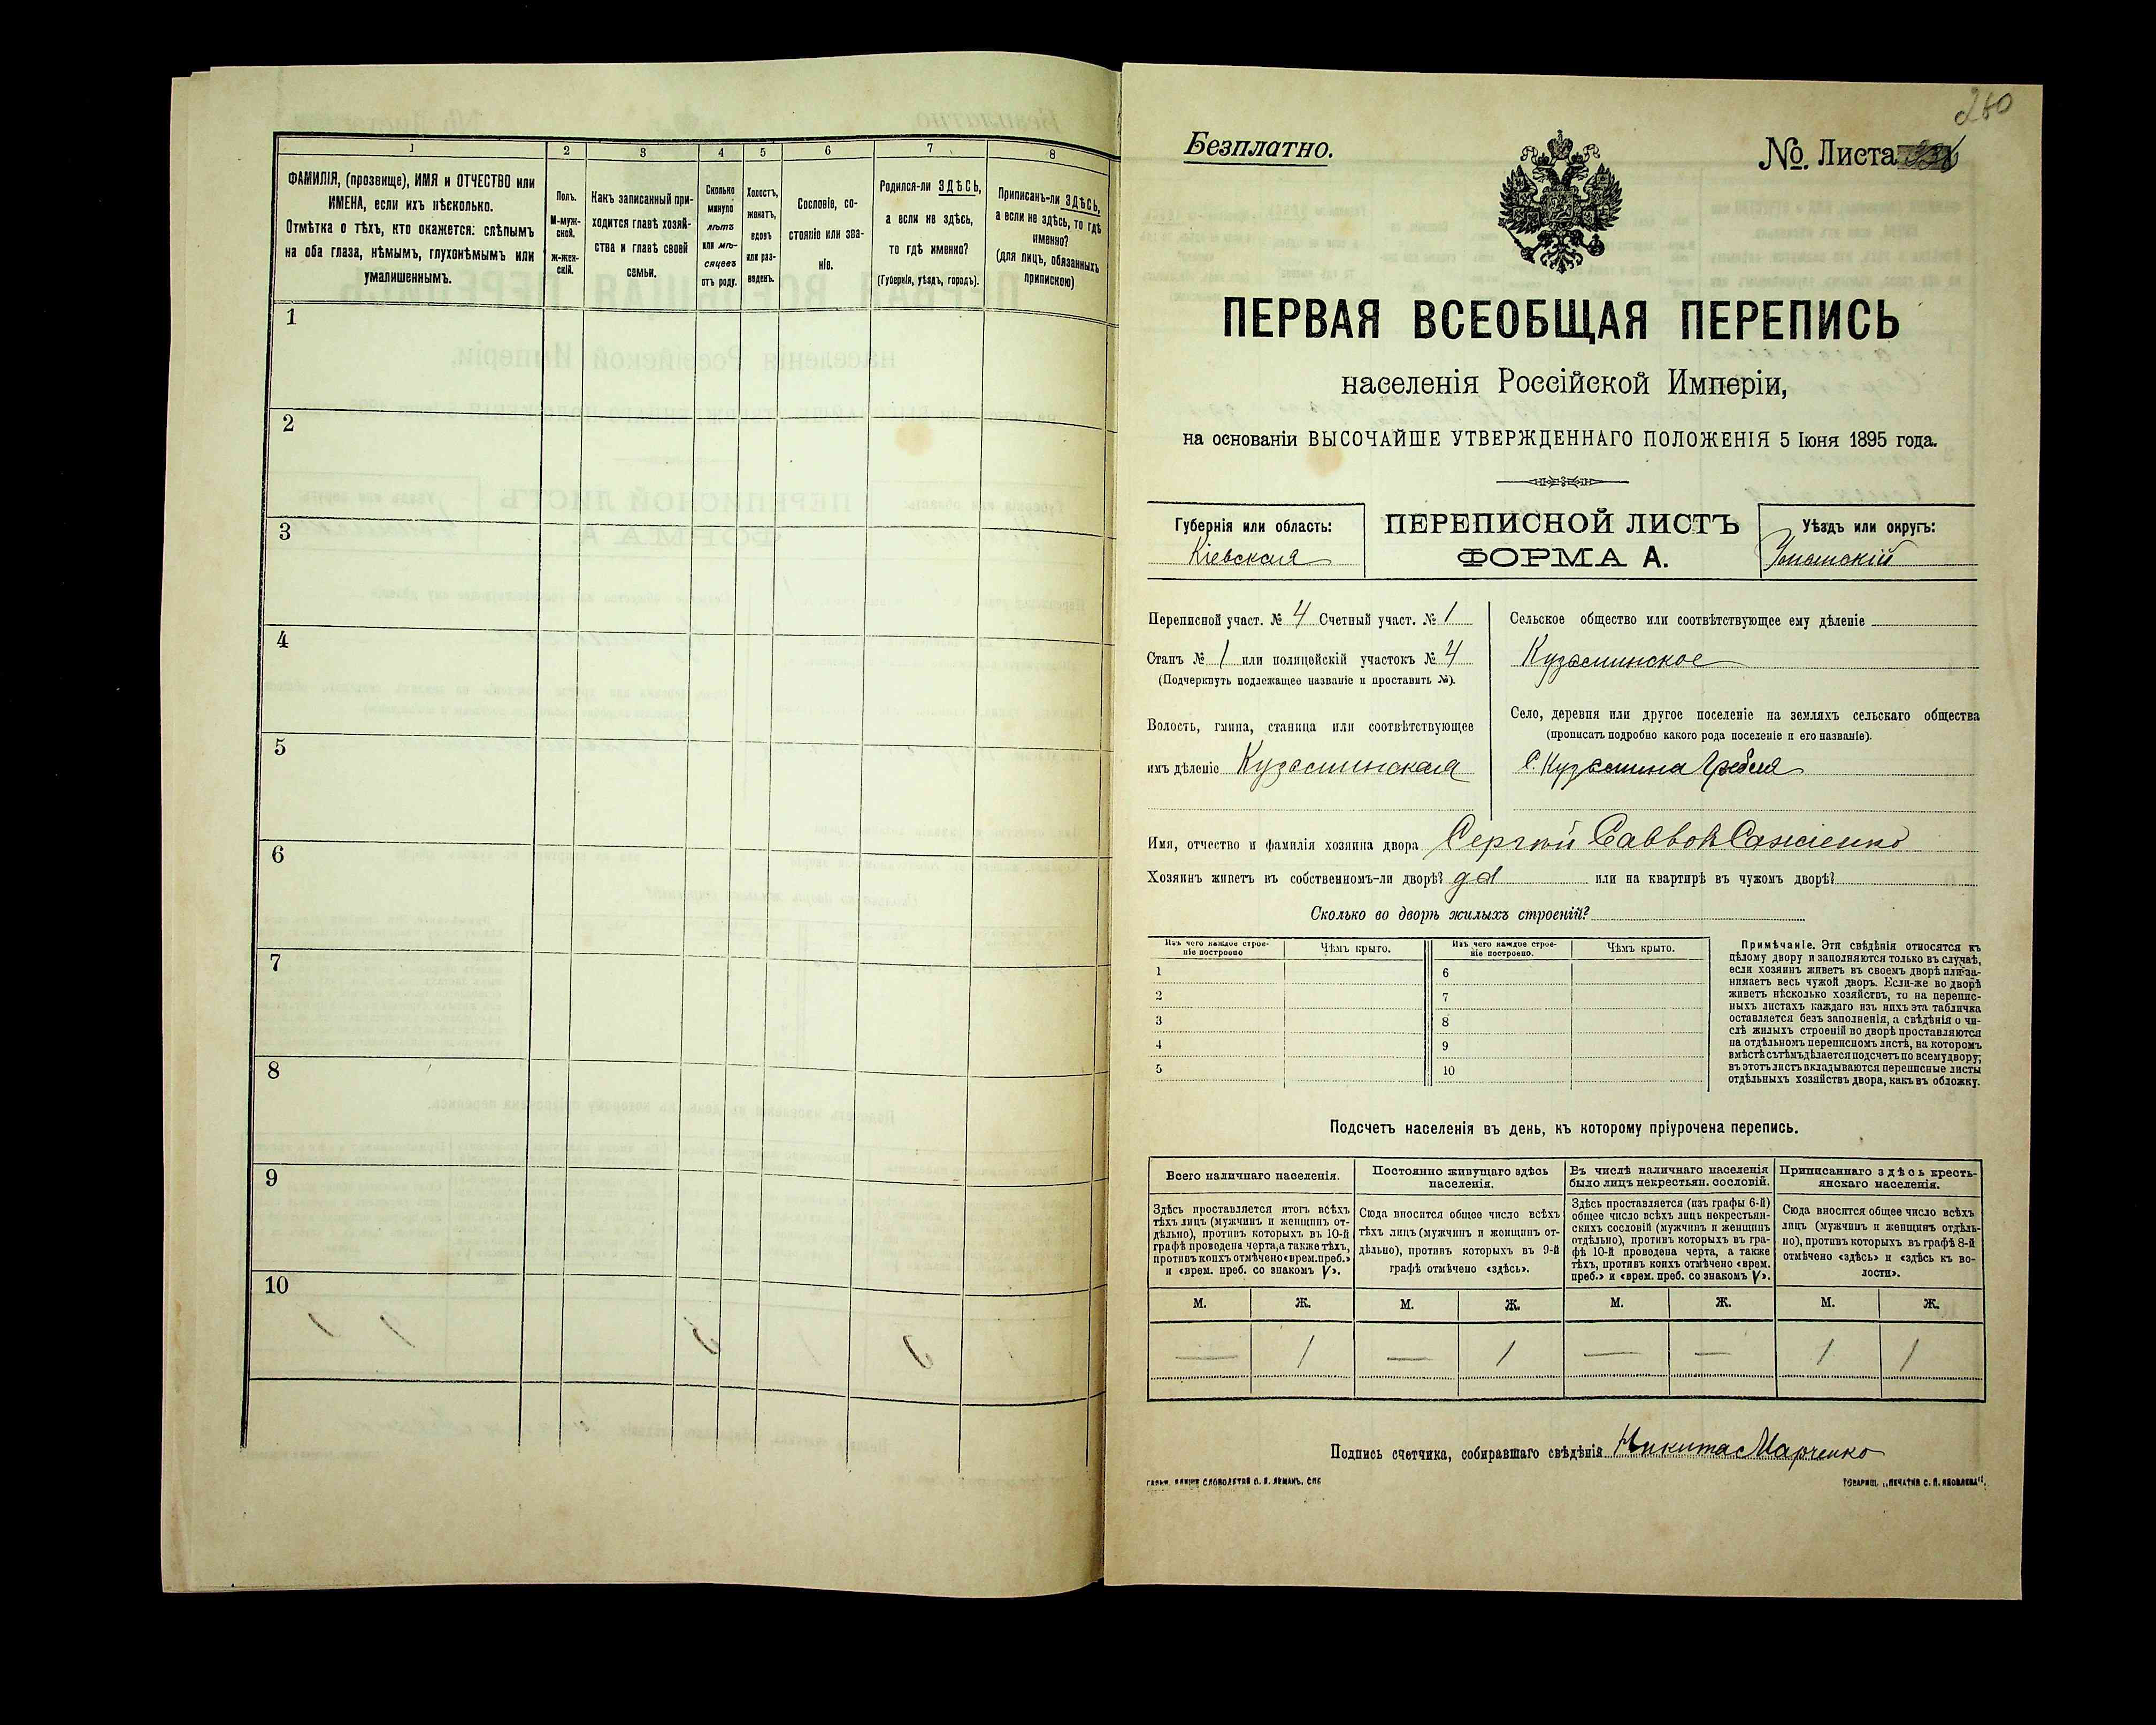 1
2
3
4
5
6
7
8
ФАМИЛІЯ, (прозвище), ИМЯ и ОТЧЕСТВО или
ИМЕНА, если ихъ нѣсколько.
Отмѣтка о тѣхъ, кто окажется: слѣпымъ
на оба глаза, нѣмымъ, глухонѣмымъ или
умалишеннымъ.
Полъ.
М-муж-
ской.
ж-жен-
скій.
Какъ записанный при-
ходится главѣ хозяй-
ства и главѣ своей
семьи.
Сколько
минуло
лѣтъ
или мѣ-
сяцевъ
отъ роду.
Холостъ,
женатъ,
вдовъ
или раз-
веденъ.
Сословіе, со-
стояніе или зва-
ніе.
Родился-ли ЗДѢСЬ,
а если не здѣсь,
то гдѣ именно?
(Губернія, уѣздъ, городъ).
Приписанъ-ли ЗДѢСЬ,
а если не здѣсь, то гдѣ
именно?
(для лицъ, обязанныхъ
припискою)
1
2
3
4
5
6
7
8
9
10
260
Безплатно.
№. Листа
ПЕРВАЯ ВСЕОБЩАЯ ПЕРЕПИСЬ
населенія Россійской Имперіи,
на основаніи ВЫСОЧАЙШЕ УТВЕРЖДЕННАГО ПОЛОЖЕНІЯ 5 Іюня 1895 года.
Губернія или область:
Кіевская
ПЕРЕПИСНОЙ ЛИСТЪ
ФОРМА А.
Уѣздъ или округъ:
Уманскій
Переписной участ. № 4 Счетный участ. № 1
Станъ № 1 или полицейскій участокъ № 4
(Подчеркнуть подлежащее названіе и проставить №).
Волость, гмина, станица или соотвѣтствующее
имъ дѣленіе Кузьминская
Сельское общество или соотвѣтствующее ему дѣленіе
Кузьминское
Село, деревня или другое поселеніе на земляхъ сельскаго общества
(прописать подробно какого рода поселеніе и его названіе).
С. Кузьмина Гребля
Имя, отчество и фамилія хозяина двора Сергѣй Саввовъ
Хозяинъ живетъ въ собственномъ-ли дворѣ? да или на квартирѣ въ чужомъ дворѣ?
Сколько во дворѣ жилыхъ строеній?
Изъ чего каждое строе-
ніе построено
Чѣмъ крыто.
Изъ чего каждое строе-
ніе построено.
Чѣмъ крыто.
1
2
3
4
5
6
7
8
9
10
Примѣчаніе. Эти свѣдѣнія относятся къ
цѣлому двору и заполняются только въ случаѣ,
если хозяинъ живетъ въ своемъ дворѣ или за-
нимаетъ весь чужой дворъ. Если-же во дворѣ
живетъ нѣсколько хозяйствъ, то на перепис-
ныхъ листахъ каждаго изъ нихъ эта табличка
оставляется безъ заполненія, а свѣдѣнія о чи-
слѣ жилыхъ строеній во дворѣ проставляются
на отдѣльномъ переписномъ листѣ, на которомъ
вмѣстѣ съ тѣмъ дѣлается подсчетъ по всему двору;
въ этотъ листъ вкладываются переписные листы
отдѣльныхъ хозяйствъ двора, какъ въ обложку.
Подсчетъ населенія въ день, къ которому пріурочена перепись.
Всего наличнаго населенія.
Постоянно живущаго здѣсь
населенія.
Въ числѣ наличнаго населенія
было лицъ некрестьян. сословій.
Приписаннаго здѣсь кресть-
янскаго населенія.
Здѣсь проставляется итогъ всѣхъ
тѣхъ лицъ (мужчинъ и женщинъ от-
дѣльно), противъ которыхъ въ 10-й
графѣ проведена черта, а также тѣхъ,
противъ коихъ отмѣчено «врем. преб.»
и «врем. преб. со знакомъ V».
Сюда вносится общее число всѣхъ
тѣхъ лицъ (мужчинъ и женщинъ от-
дѣльно), противъ которыхъ въ 9-й
графѣ отмѣчено «здѣсь».
Здѣсь проставляется (изъ графы 6-й)
общее число всѣхъ лицъ некрестьян-
скихъ сословій (мужчинъ и женщинъ
отдѣльно), противъ которыхъ въ гра-
фѣ 10-й проведена черта, а также
тѣхъ, противъ коихъ отмѣчено «врем.
преб.» и «врем. преб. со знакомъ V».
Сюда вносится общее число всѣхъ
лицъ (мужчинъ и женщинъ отдѣль-
но), противъ которыхъ въ графѣ 8-й
отмѣчено «здѣсь» и «здѣсь къ во-
лости».
М. Ж. М. Ж. М. Ж. М. Ж.
— 1 — 1 — — 1 1
Подпись счетчика, собиравшаго свѣдѣнія Никита Марченко
СЛОВОЛИТНЯ О. И. ЛЕМАНЪ, СПБ
ТОВАРИЩ. „ПЕЧАТНЯ С. П. ЯКОВЛЕВА".